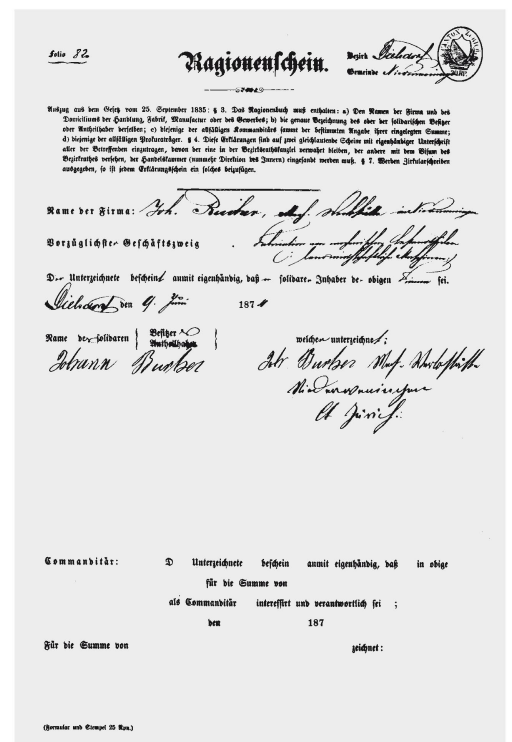 Folio 82
Ragionenschein.
Bezirk Dielsdorf
Gemeinde Niederweningen
Auszug aus dem Gesetz vom 25. September 1835: § 3. Das Ragionenbuch muß enthalten: a) Den Namen der Firma und des
Domiciliums der Handlung, Fabrik, Manufactur oder des Gewerbes; b) die genaue Bezeichnung des oder der solidarischen Besitzer
oder Antheilhaber derselben; c) diejenige der allfälligen Kommanditärs sammt der bestimmten Angabe ihrer eingelegten Summe;
d) diejenige der allfälligen Prokuraträger. § 4. Diese Erklärungen sind auf zwei gleichlautende Scheine mit eigenhändiger Unterschrift
aller der Betreffenden einzutragen, davon der eine in der Bezirksrathskanzlei verwahrt bleiben, der andere mit dem Visum des
Bezirksrathes versehen, der Handelskammer (nunmehr Direktion des Innern) eingesandt werden muß. § 7. Werden Zirkularschreiben
ausgegeben, so ist jedem Erklärungsschein ein solches beizufügen.
Name der Firma: Joh. Bucher, Werkstätte in Niederweningen
Vorzüglichster Geschäftszweig
landwirthschaftliche Maschinen
Der Unterzeichnete bescheint anmit eigenhändig, daß er solidarer Inhaber der obigen Firma sei.
Dielsdorf den 9. Juni 1874
Name des solidaren Besitzer Antheilhaber
welcher unterzeichnet:
Johann Bucher
Joh Bucher Mech. Werkstätte
Niederweningen
Ct Zürich.
Commanditär: D Unterzeichnete beschein anmit eigenhändig, daß in obige
für die Summe von
als Commanditär interessirt und verantwortlich sei ;
den 187
Für die Summe von zeichnet:
(Formular und Stempel 25 Rpn.)